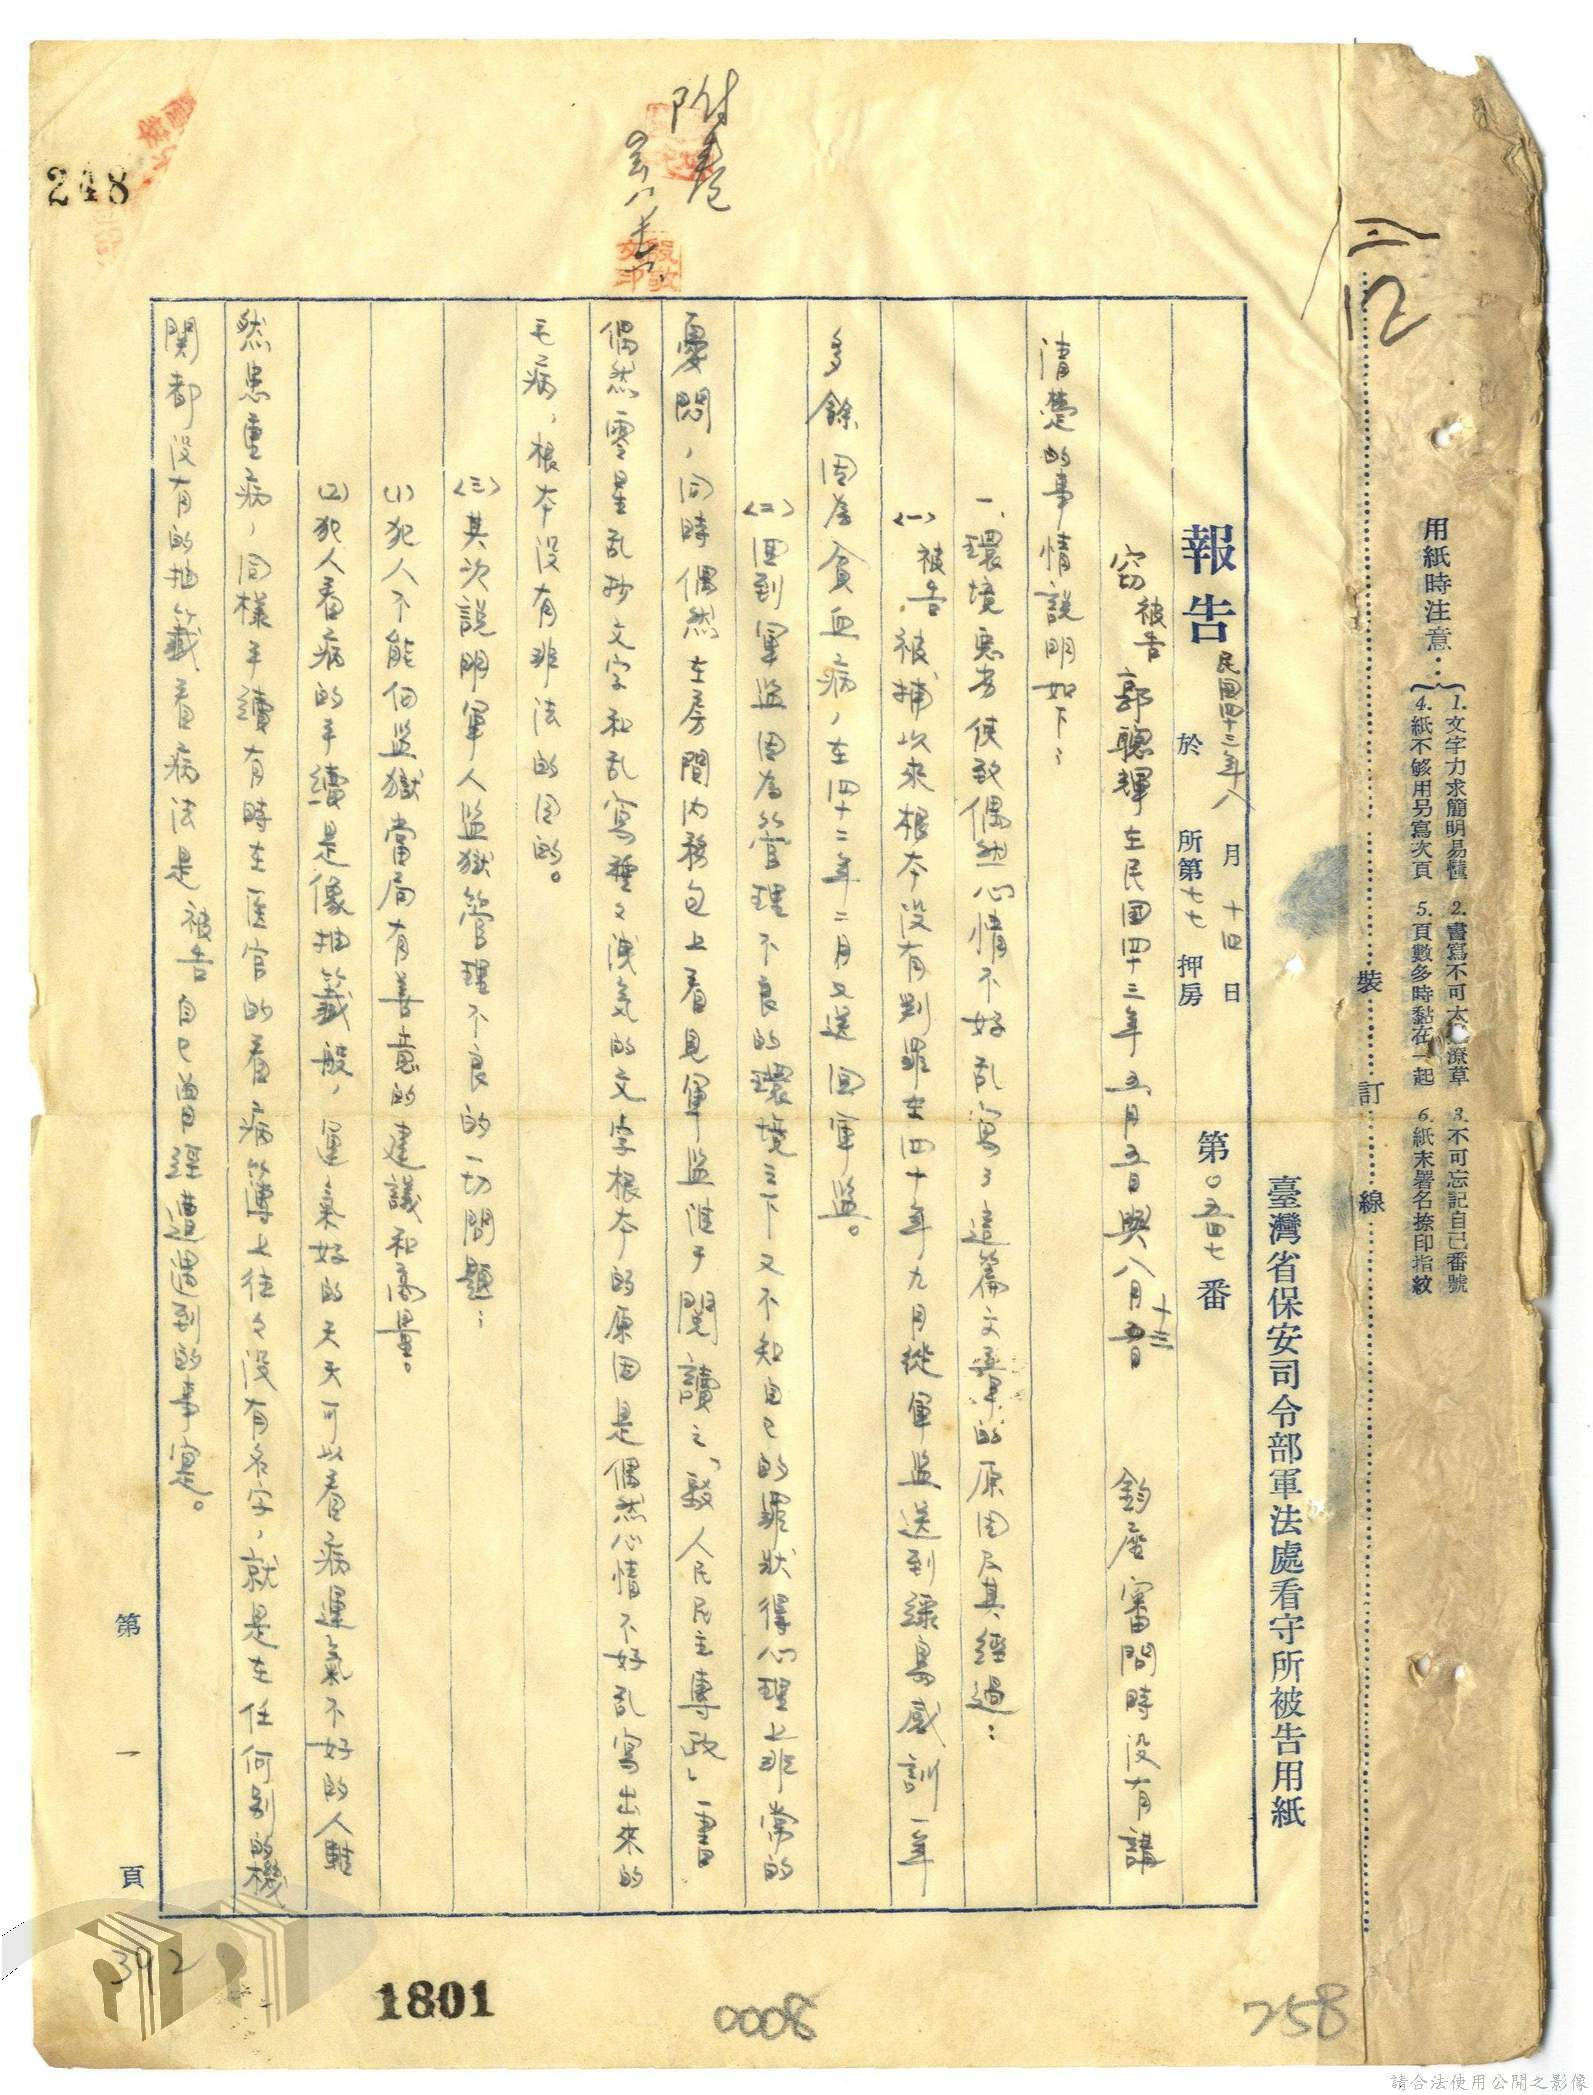 用紙時注意：
1. 文字力求簡明易懂 2. 書寫不可太潦草 3. 不可忘記自己番號
4. 紙不够用另寫次頁 5. 頁數多時黏在一起 6. 紙末署名捺印指紋
裝訂線
臺灣省保安司令部軍法處看守所被告用紙
報告 民國四十三年八月十四日
於 所第七七押房 第〇五四七番
窃被告郭聰輝在民国四十三年五月五日與八月十三日 鈞座審問時没有講
清楚的事情説明如下：
一、環境惡劣使致偶然心情不好乱寫了這篇文章的原因及其經過：
(一)被告被捕以來根本没有判罪在四十年九月從軍监送到綠島感訓一年
多餘因為貧血病，在四十二年二月又送回軍监。
(二)回到軍监因為管理不良的環境之下又不知自己的罪狀得心理上非常的
憂悶，同時偶然在房間内務包上看見軍监准予閱讀之「駁人民民主專政」一書
偶然零星乱抄文字和乱寫種々洩気的文字根本的原因是偶然心情不好乱寫出來的
毛病，根本没有非法的目的。
(三)其次説明軍人监獄管理不良的一切問題：
(1)犯人不能向监獄當局有善意的建議和商量。
(2)犯人看病的手續是像抽籤般，運氣好的天天可以看病運氣不好的人雖
然患重病，同樣手續有時在医官的看病簿上往々没有名字，就是在任何别的機
関都没有的抽籤看病法是被告自己曾經遭遇到的事实。
第一頁
附卷
248
342
1801
0008
258
請合法使用公開之影像